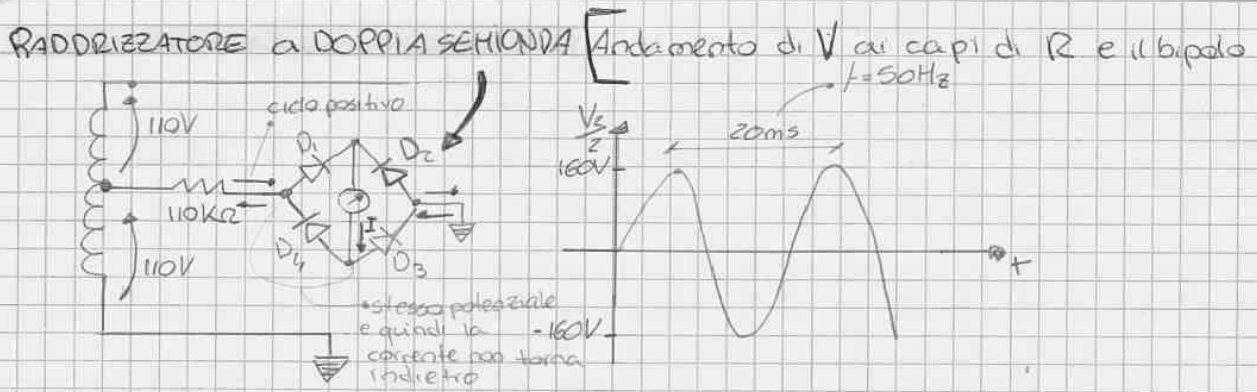 RADDRIZZATORE a DOPPIA SEMIONDA [Andamento di V ai capi di R e il bipolo
f=50Hz
ciclo positivo
110V
D1
D2
110KΩ
I
D4
D3
110V
•stesso potenziale
e quindi la
corrente non torna
indietro
Vs/2
20ms
160V
t
-160V